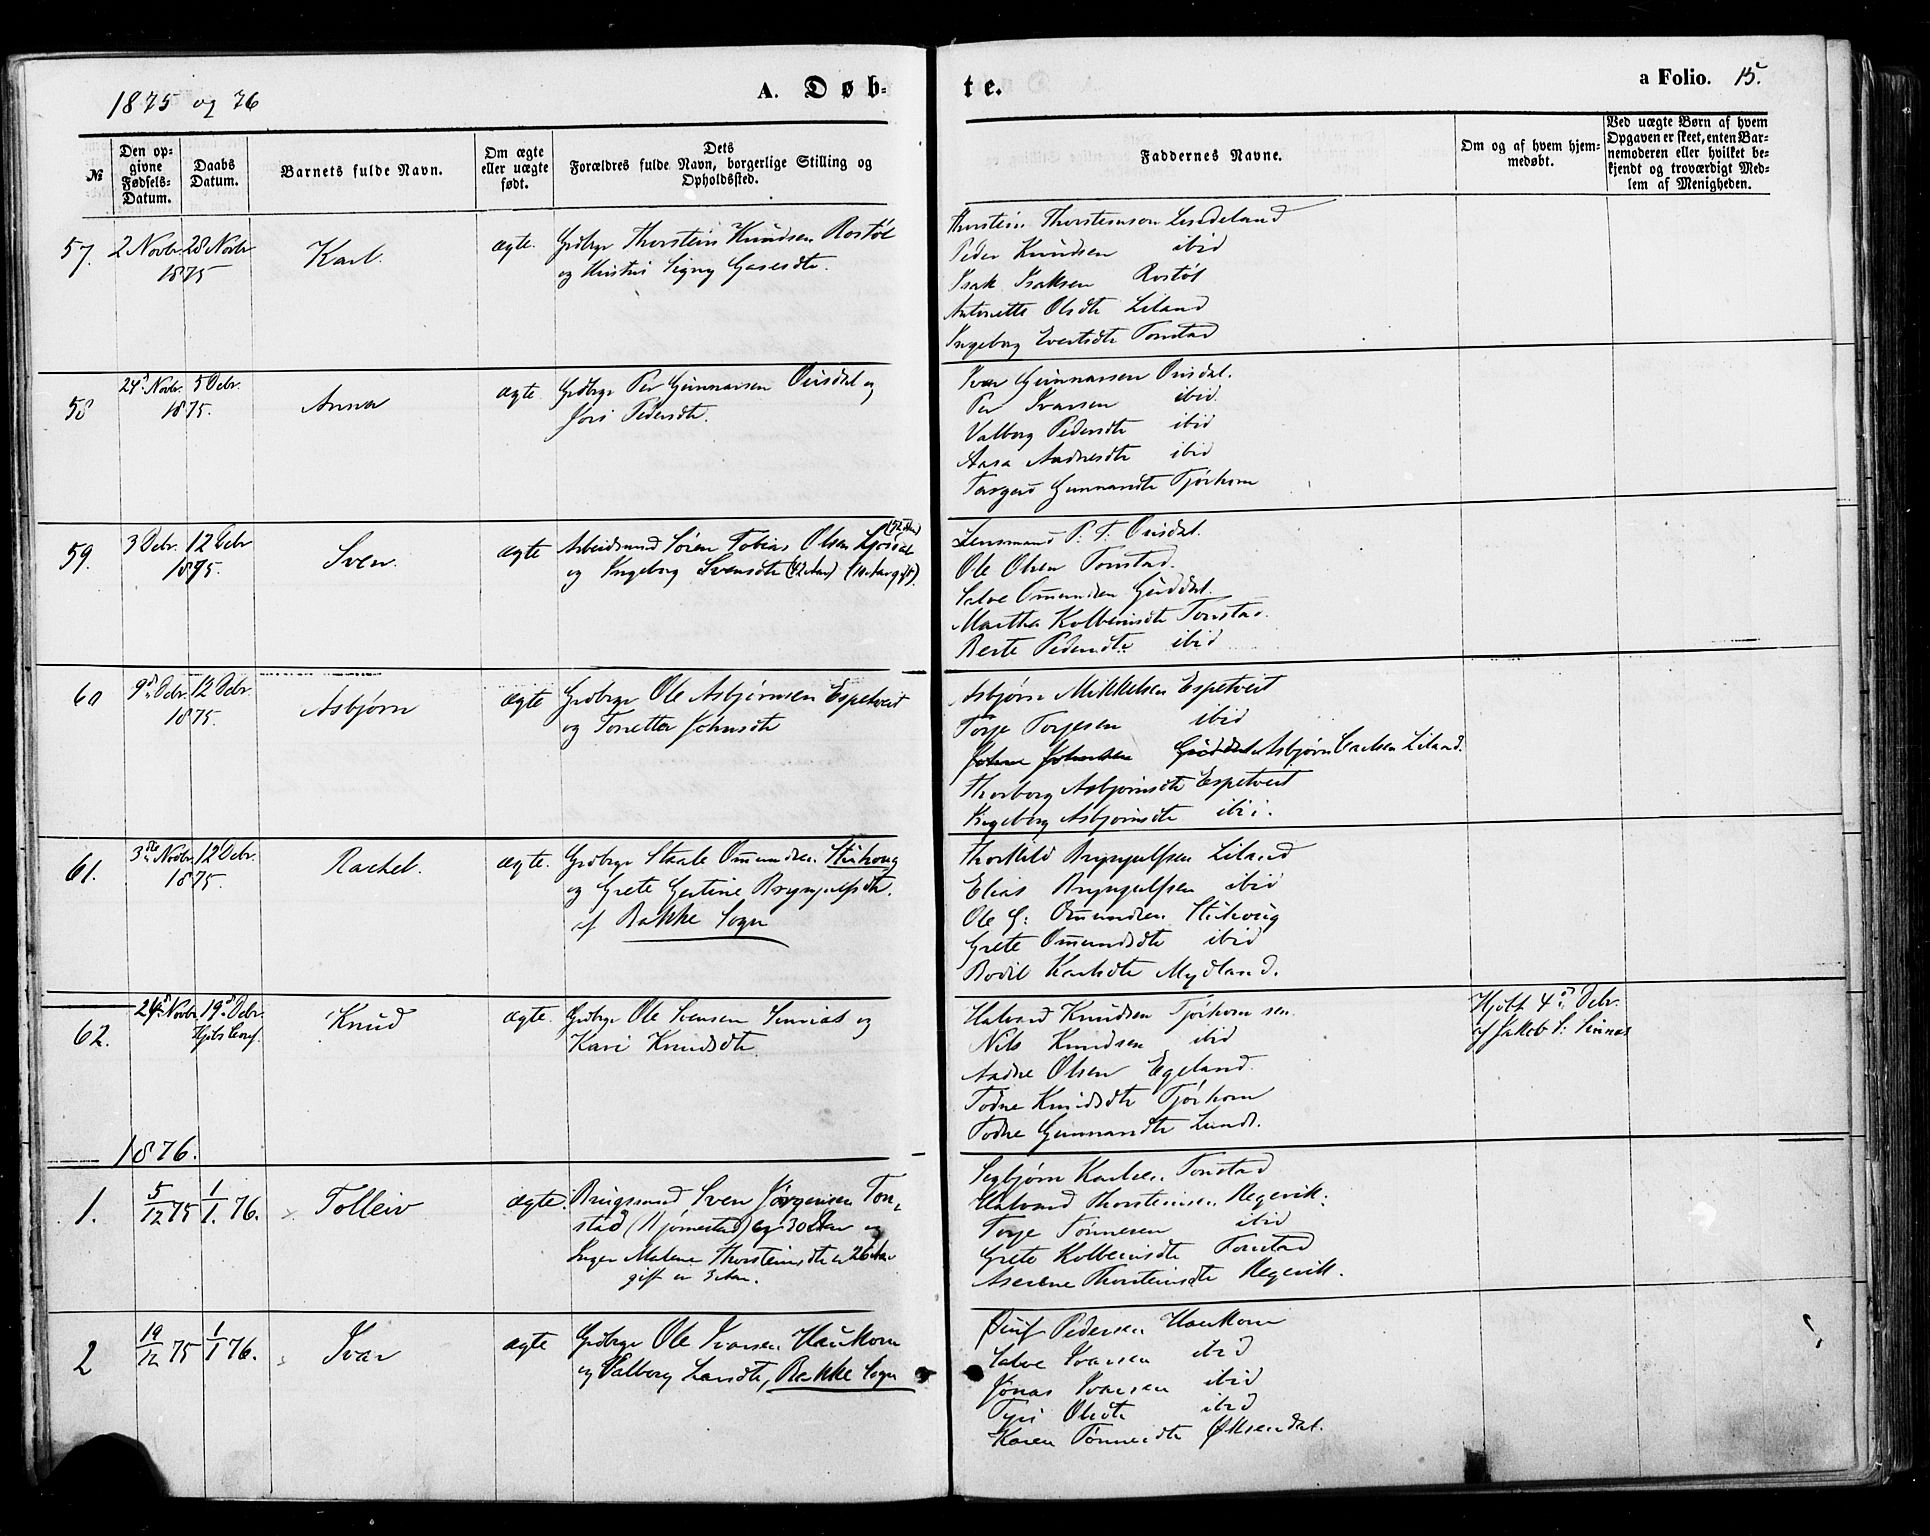 1875 og 76
A. Døb-
te.
a Folio. 15.
№
Den op-
givne
Fødsels-
Datum.
Daabs
Datum.
Barnets fulde Navn.
Om ægte
eller uægte
født.
Dets
Forældres fulde Navn, borgerlige Stilling og
Opholdssted.
Faddernes Navne.
Om og af hvem hjem-
medøbt.
Ved uægte Børn af hvem
Opgaven er skeet, enten Bar-
nemoderen eller hvilket be-
kjendt og troværdigt Med-
lem af Menigheden.
57. 2 Novbr. 28 Novbr
1875
Karl.
ægte.
Grdbgr Thorstein Knudsen Rostøl
og Hustru Signy Gasesdtr.
Thorstein Thorsteinson Lindeland
Peder Knudsen ibid
Isak Isaksen Rostøl
Antonette Olsdtr Liland
Ingeborg Evertsdtr Tonstad
58 24de Novbr. 5 Debr.
1875.
Anna
ægte.
Grdbgr Per Gunnarsen Ousdal og
Jori Pedersdtr.
Ivar Gunnarsen Ousdal.
Per Ivarsen ibid.
Valborg Pedersdtr ibid
Aasa Andresdtr ibid
Torgerd Gunnarsdtr Tjørhom
59. 3 Debr. 12 Debr
1875.
Sven.
ægte
Arbeidsmand Søren Tobias Olsen
og Ingeborg Svensdtr (42 Aar) (10 Aar gift).
Lensmand P. T. Ousdal.
Ole Olsen Tonstad.
Salve Omundsen Guddal.
Martha Kolbeinsdtr Tonstad.
Berte Pedersdtr ibid
60 9de Debr. 12 Debr.
1875.
Asbjørn
ægte
Grdbgr Ole Asbjørnsen Espetveit
og Tonetta Johnsdtr
Asbjørn Mikkelsen Espetveit
Torje Torjesen ibid
Asbjørn Carlsen Liland.
Thorborg Asbjørnsdtr Espetveit
Ingeborg Asbjørnsdtr ibi.
61. 3die Novbr. 12 Debr.
1875.
Rachel.
ægte.
Grdbgr Staale Omundsen Stuhoug
og Grete Gertine Bryngelfsdtr.
af Bakke Sogn
Thorkild Bryngelfsen Liland
Elias Bryngelfsen ibid
Ole G: Omundsen Stuhoug
Grete Omundsdtr ibid
Bodil Karlsdtr Mydland.
62. 24de Novbr. 19de Debr.
Knud
ægte.
Grdbgr Ole Svensen Sinnes og
Kari Knudsdtr.
Halvard Knudsen Tjørhom sen.
Nils Knudsen ibid
Andre Olsen Egeland.
Todne Knudsdtr Tjørhom
Todne Gunnarsdtr Lunde.
Hjdbt. 4de Debr.
af Jakob S: Sinnes
1876.
1. 5/12 75 1/1. 76.
Tolleiv
ægte.
Brugsmand Sven Jørgensen Ton-
stad (Hjømestad) er 30 Aar og
Inger Malene Thorsteinsdtr er 26 Aar
gift er 3 Aar.
Segbjørn Karlsen Tonstad
Halvard Thorsteinsen Regevik.
Torje Tønnesen ibid
Grete Kolbeinsdtr Tonstad
Aserene Thorsteinsdtr Regevik.
2 19/12 75 1/1 76.
Ivar
ægte
Grdbgr Ole Ivarsen Haukom
og Valborg Larsdtr, Bakke Sogn
Pedersen Haukom
Salve Ivarsen ibid
Jonas Ivarsen ibid
Olsdtr ibid
Karen Tønnesdtr Øksendal.